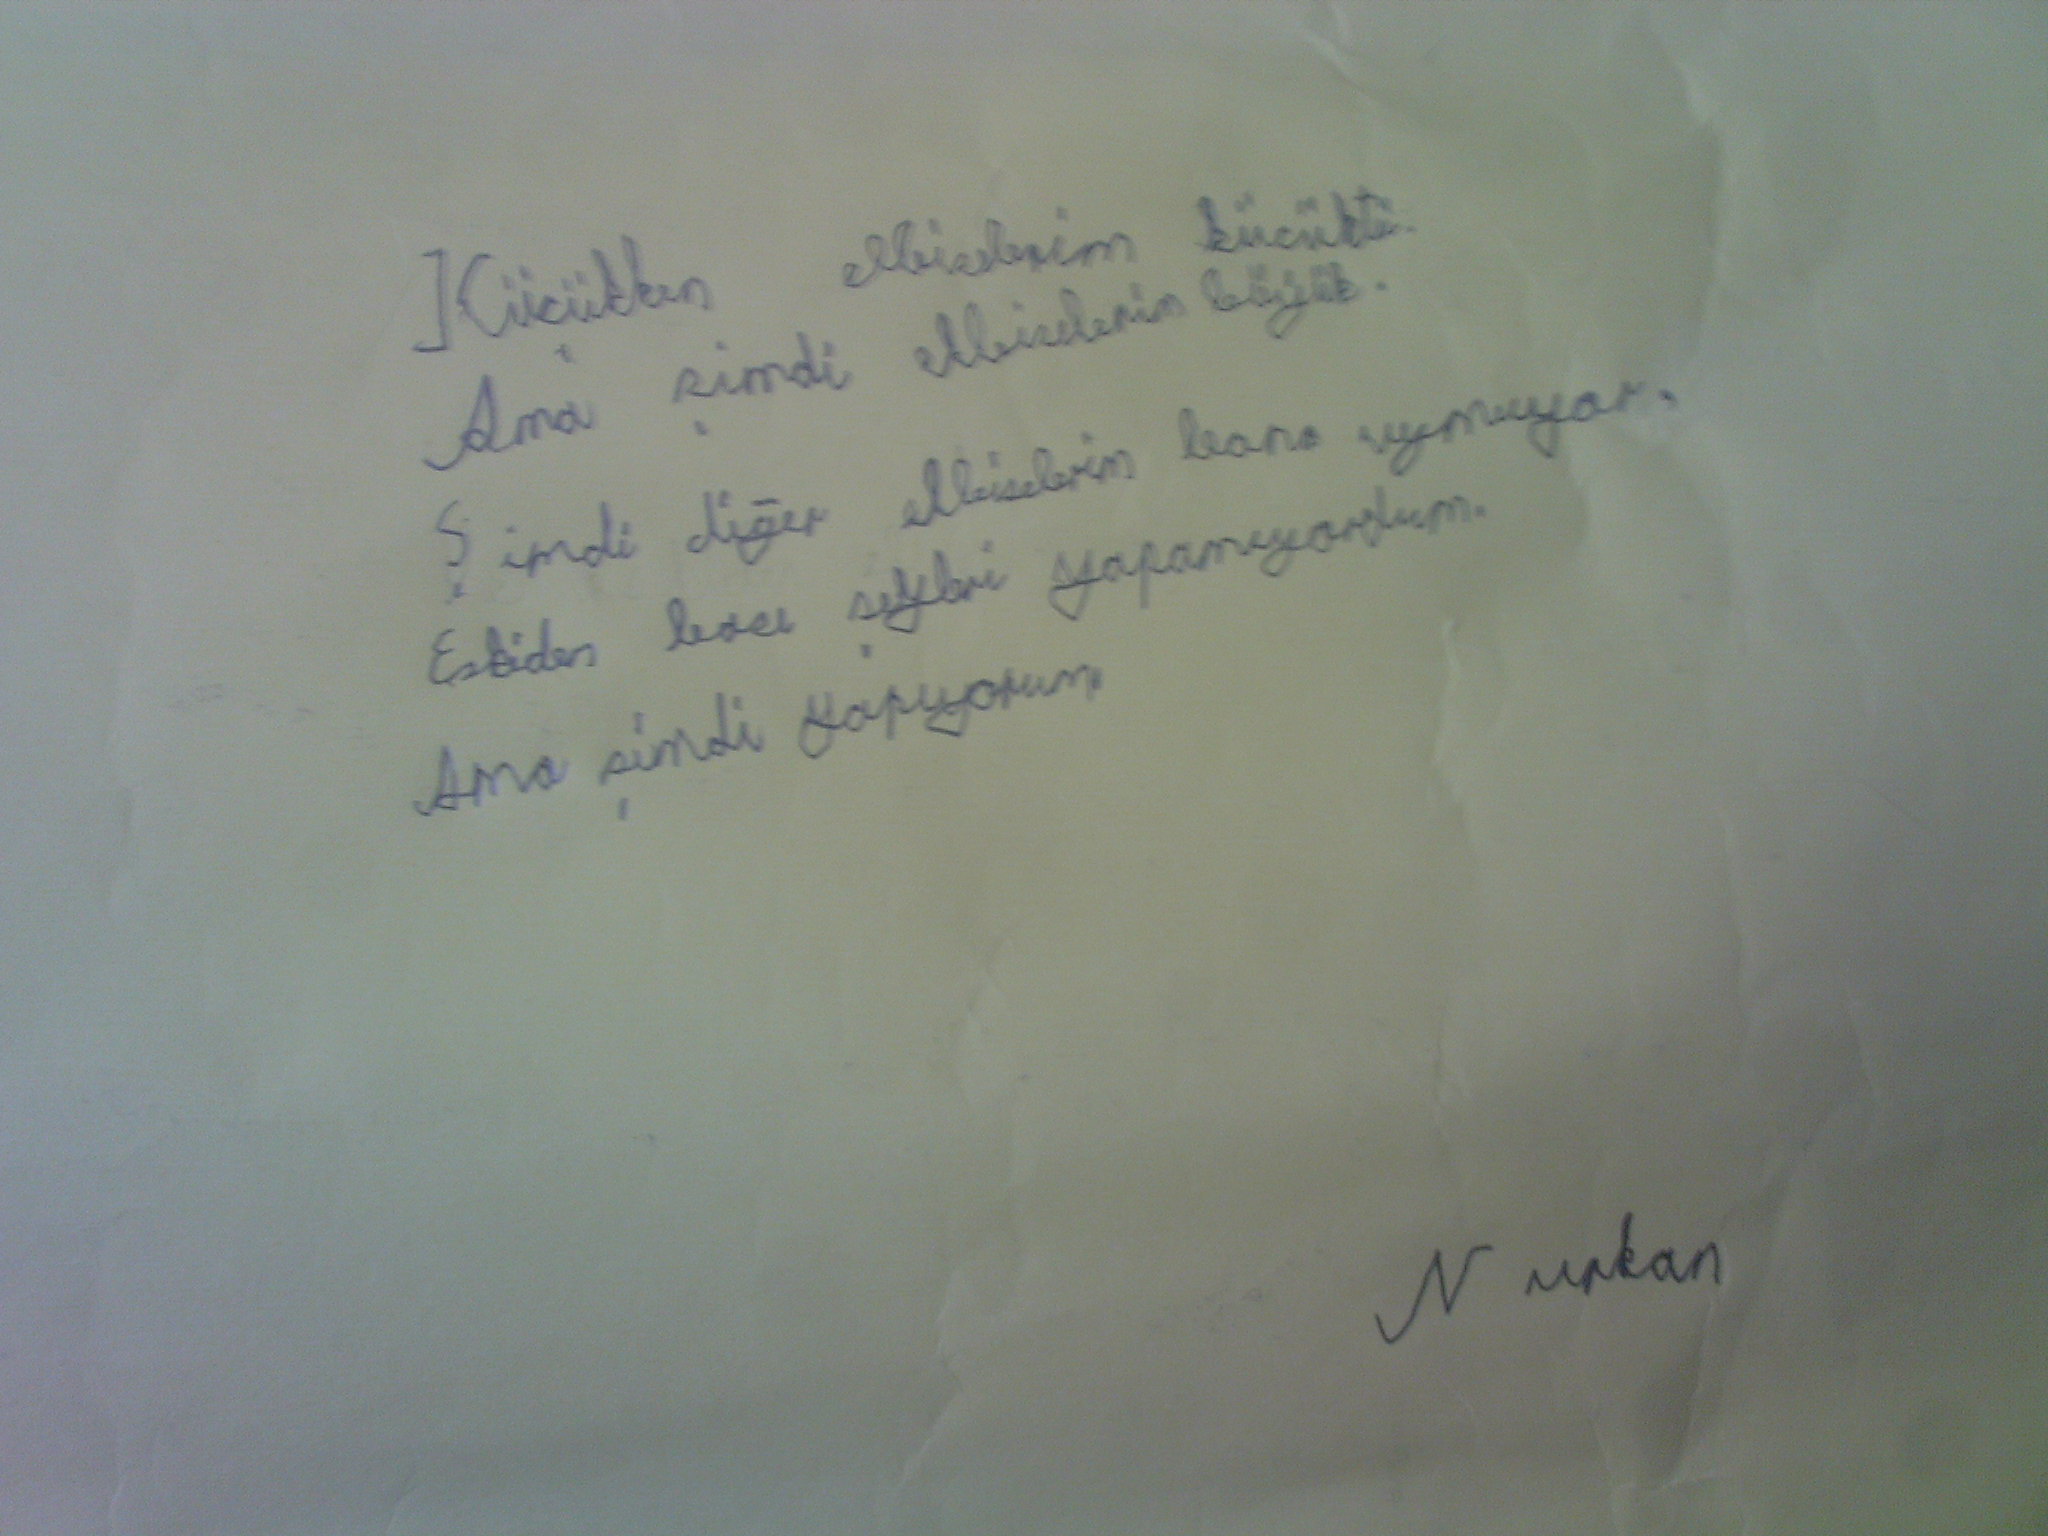 Küçükken elbiselerim kücüktü.
Ama şimdi elbiselerim böyük.
Şimdi diğer elbiselerim bana uymuyor.
Eskiden bazı şeyleri yapamıyordum.
Ama şimdi yapıyorum.
Nurkan